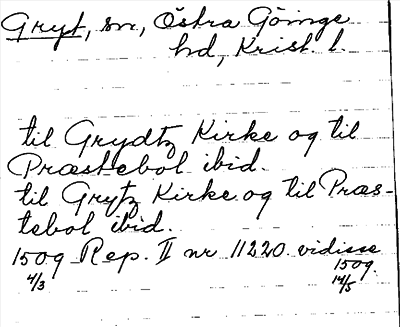 Gryt, sn, Östra Göinge
hd, Krist. l.
til Grydtz Kirke og til
Præstebol ibid.
til Grytz Kirke og til Præs-
tebol ibid.
1509 Rep. II nr 11220 vidisse
4/3 1509 14/5